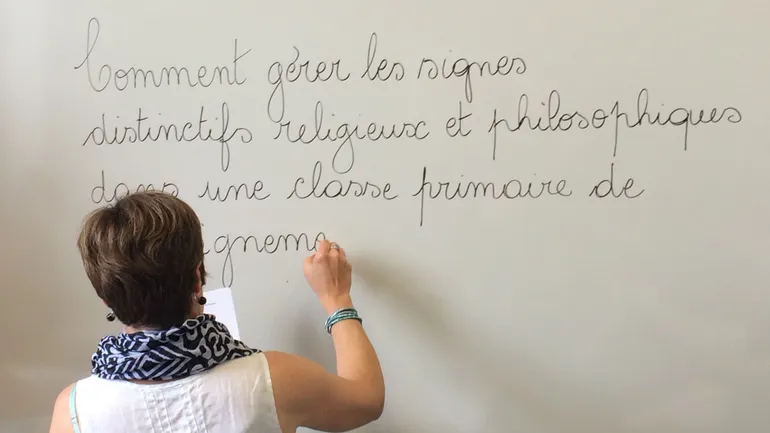 Comment gérer les signes
distinctifs religieux et philosophiques
dans une classe primaire de
igneme